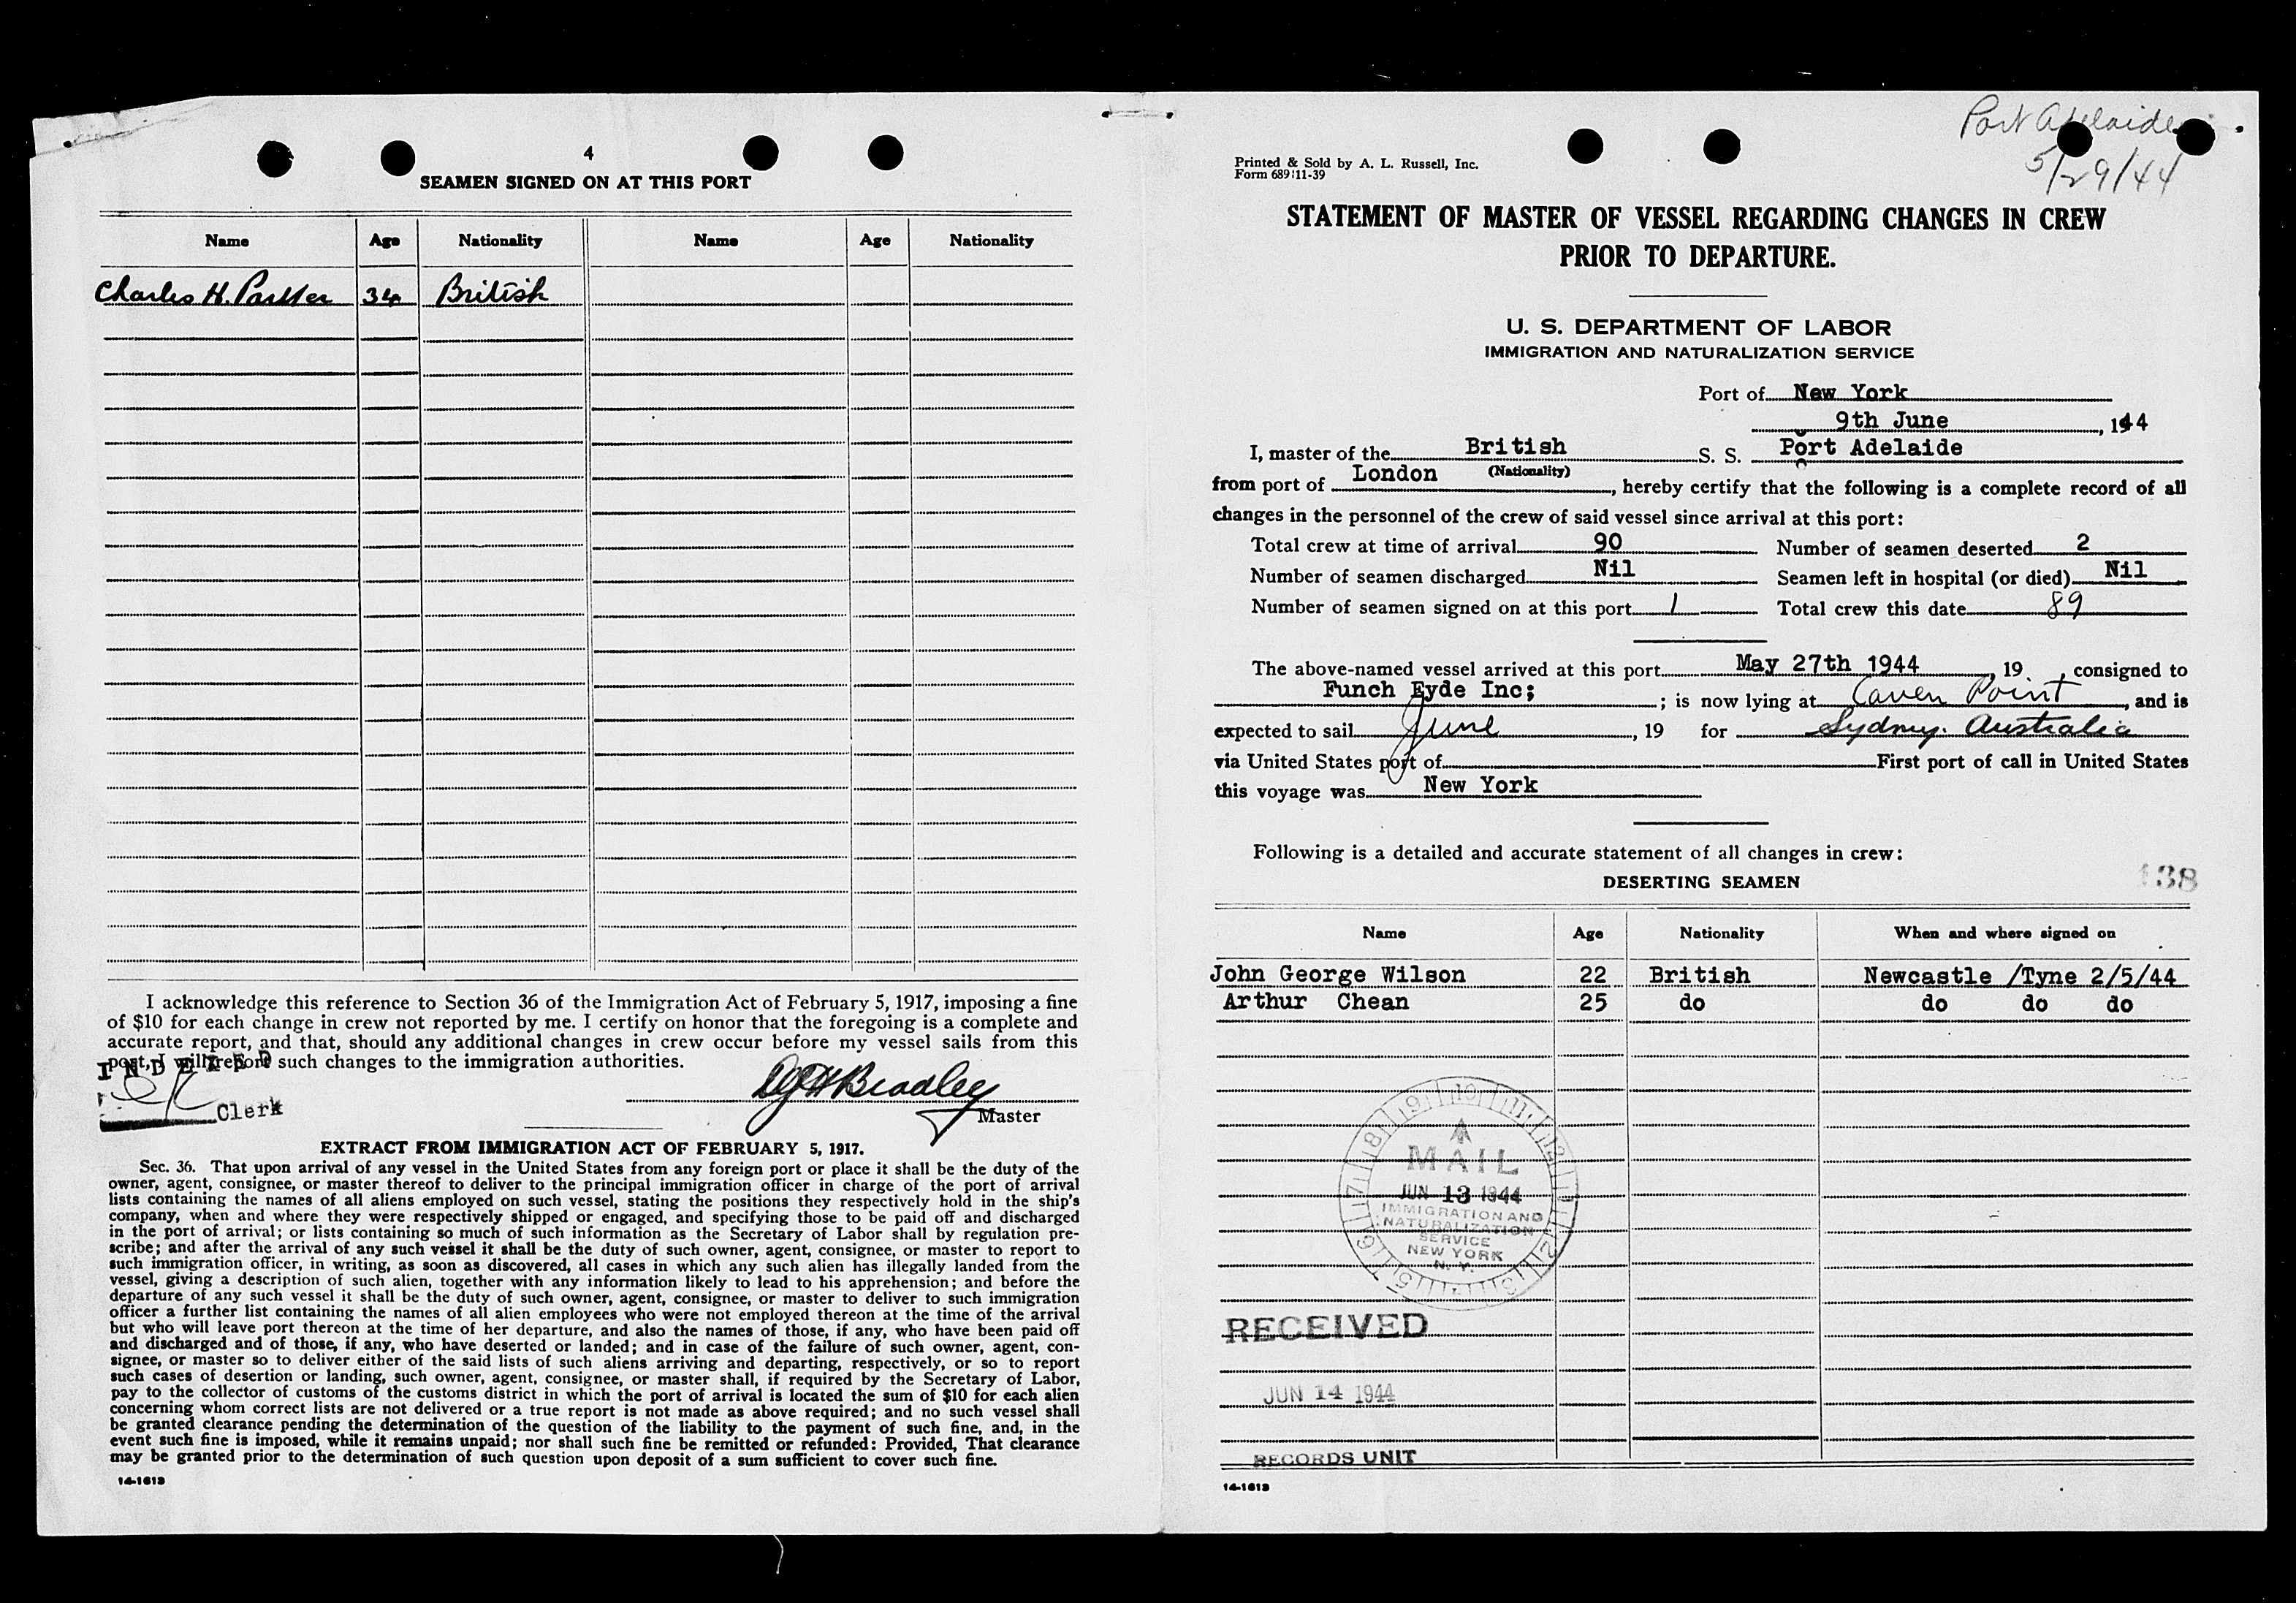 4
SEAMEN SIGNED ON AT THIS PORT
Name Age Nationality Name Age Nationality
Charles H. Parker 34 British
I acknowledge this reference to Section 36 of the Immigration Act of February 5, 1917, imposing a fine
of $10 for each change in crew not reported by me. I certify on honor that the foregoing is a complete and
accurate report, and that, should any additional changes in crew occur before my vessel sails from this
port, I will report such changes to the immigration authorities.
INDEXED
Clerk
Bradley
Master
EXTRACT FROM IMMIGRATION ACT OF FEBRUARY 5, 1917.
Sec. 36. That upon arrival of any vessel in the United States from any foreign port or place it shall be the duty of the
owner, agent, consignee, or master thereof to deliver to the principal immigration officer in charge of the port of arrival
lists containing the names of all aliens employed on such vessel, stating the positions they respectively hold in the ship's
company, when and where they were respectively shipped or engaged, and specifying those to be paid off and discharged
in the port of arrival; or lists containing so much of such information as the Secretary of Labor shall by regulation pre-
scribe; and after the arrival of any such vessel it shall be the duty of such owner, agent, consignee, or master to report to
such immigration officer, in writing, as soon as discovered, all cases in which any such alien has illegally landed from the
vessel, giving a description of such alien, together with any information likely to lead to his apprehension; and before the
departure of any such vessel it shall be the duty of such owner, agent, consignee, or master to deliver to such immigration
officer a further list containing the names of all alien employees who were not employed thereon at the time of the arrival
but who will leave port thereon at the time of her departure, and also the names of those, if any, who have been paid off
and discharged and of those, if any, who have deserted or landed; and in case of the failure of such owner, agent, con-
signee, or master so to deliver either of the said lists of such aliens arriving and departing, respectively, or so to report
such cases of desertion or landing, such owner, agent, consignee, or master shall, if required by the Secretary of Labor,
pay to the collector of customs of the customs district in which the port of arrival is located the sum of $10 for each alien
concerning whom correct lists are not delivered or a true report is not made as above required; and no such vessel shall
be granted clearance pending the determination of the question of the liability to the payment of such fine, and, in the
event such fine is imposed, while it remains unpaid; nor shall such fine be remitted or refunded: Provided, That clearance
may be granted prior to the determination of such question upon deposit of a sum sufficient to cover such fine.
14-1613
Port Adelaide
5/29/44
Printed & Sold by A. L. Russell, Inc.
Form 689 11-39
STATEMENT OF MASTER OF VESSEL REGARDING CHANGES IN CREW
PRIOR TO DEPARTURE.
U. S. DEPARTMENT OF LABOR
IMMIGRATION AND NATURALIZATION SERVICE
Port of New York
9th June, 1944
I, master of the British S. S. Port Adelaide
(Nationality)
from port of London, hereby certify that the following is a complete record of all
changes in the personnel of the crew of said vessel since arrival at this port:
Total crew at time of arrival 90 Number of seamen deserted 2
Number of seamen discharged Nil Seamen left in hospital (or died) Nil
Number of seamen signed on at this port 1 Total crew this date 89
The above-named vessel arrived at this port May 27th 1944, 19 , consigned to
Funch Eyde Inc; ; is now lying at Caven Point, and is
expected to sail June, 19 for Sydney. Australia
via United States port of First port of call in United States
this voyage was New York
Following is a detailed and accurate statement of all changes in crew:
138
DESERTING SEAMEN
Name Age Nationality When and where signed on
John George Wilson 22 British Newcastle /Tyne 2/5/44
Arthur Chean 25 do do do do
MAIL
JUN 13 1944
IMMIGRATION AND
NATURALIZATION
SERVICE
NEW YORK
N. Y.
RECEIVED
JUN 14 1944
RECORDS UNIT
14-1613